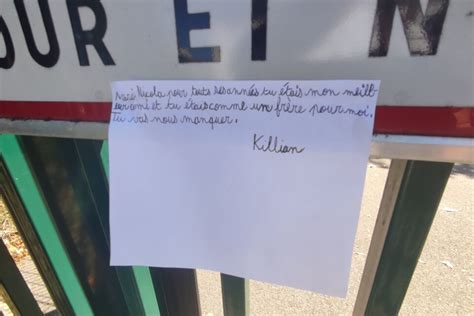 OUR ET N
Nicola pour tout ses années tu étais mon meill-
eur ami et tu étais comme un frère pour moi.
Tu vas nous manquer.
Killian